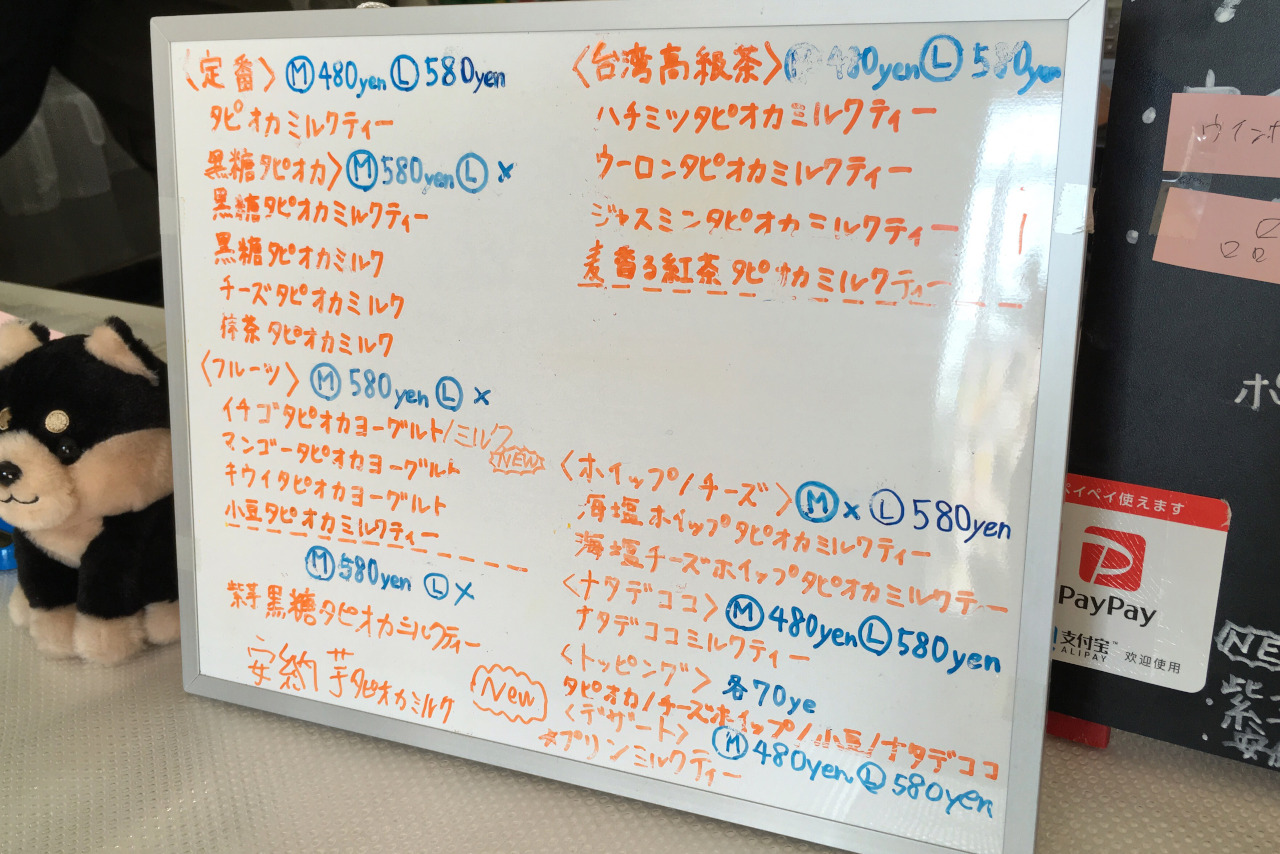 〈定番〉 Ⓜ480yen Ⓛ580yen
タピオカミルクティー
黒糖タピオカ〉Ⓜ580yen Ⓛ×
黒糖タピオカミルクティー
黒糖タピオカミルク
チーズタピオカミルク
抹茶タピオカミルク
〈フルーツ〉 Ⓜ580yen Ⓛ×
イチゴタピオカヨーグルト/ミルク
NEW
マンゴータピオカヨーグルト
キウイタピオカヨーグルト
小豆タピオカミルクティー
Ⓜ580yen Ⓛ×
紫芋黒糖タピオカミルクティー
安納芋タピオカミルク
New
〈台湾高級茶〉Ⓜ480yen Ⓛ580yen
ハチミツタピオカミルクティー
ウーロンタピオカミルクティー
ジャスミンタピオカミルクティー
麦香る紅茶タピオカミルクティー
〈ホイップ/チーズ〉Ⓜ× Ⓛ580yen
海塩ホイップタピオカミルクティー
海塩チーズホイップタピオカミルクティー
〈ナタデココ〉Ⓜ480yen Ⓛ580yen
ナタデココミルクティー
〈トッピング〉各70ye
タピオカ/チーズホイップ/小豆/ナタデココ
〈デザート〉Ⓜ480yen Ⓛ580yen
☆プリンミルクティー
ペイペイ使えます
PayPay
支付宝
ALIPAY
欢迎使用
ウインナ
ロロ
ポ
NE
紫
安